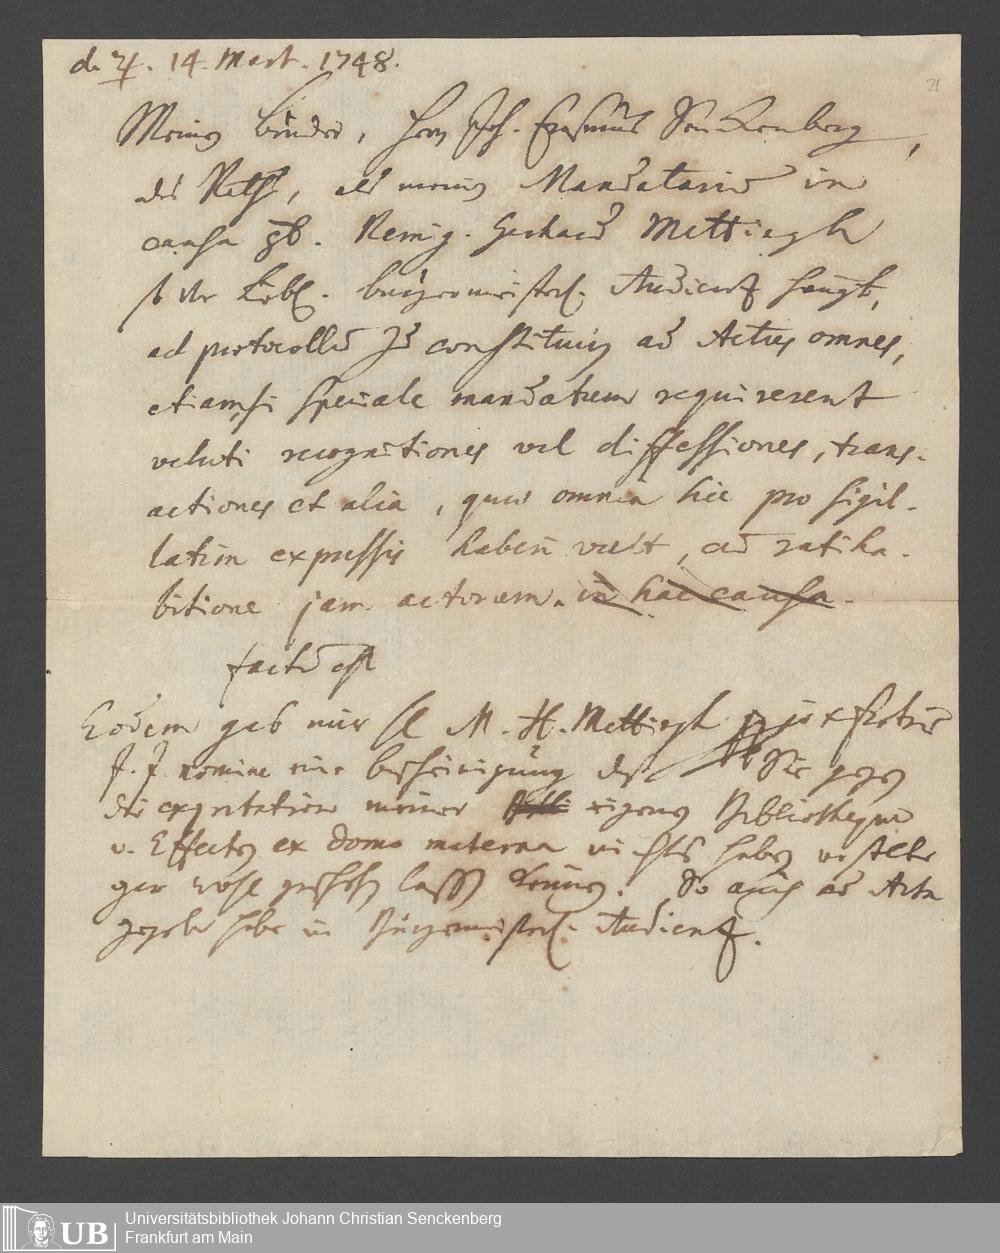 d. ♃. 14. Mart. 1748.
21
Meinen Bruder, Herrn Joh. Erasmus Senckenberg,
des Raths, als meinen Mandatarium in
causa Remig. Gerhard Mettingh
Löbl. Burgermeisterl. Audientz
ad protocollum zu constituiren ad Actus omnes,
etiamsi speciale mandatum requirerent
veluti recognitiones vel diffessiones, trans-
actiones et alia, quae omnia hic pro sigil-
latim expressis haberi velit, cum ratiha-
bitione jam actorum. in hac causa.
factum est
Eodem gab mir H. Mettingh
nomine eine bescheinigung das Sie gegen
die exportation meiner eigenen Bibliotheque
u. Effecten ex domo materna nichts haben
gar wohl geschehen lassen können. So auch ad Acta
gegeben habe in Burgermeisterl. Audientz.
UB Universitätsbibliothek Johann Christian Senckenberg
Frankfurt am Main